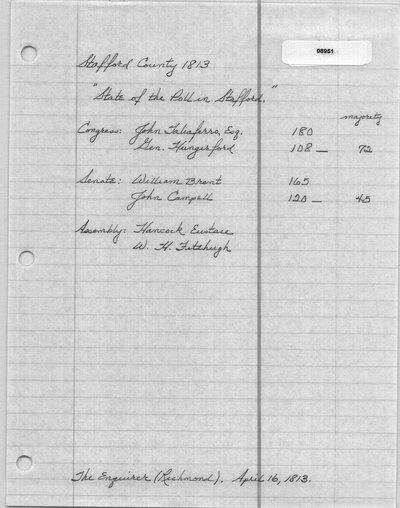 08951
Stafford County 1813
"State of the Poll in Stafford."
majority
Congress: John Taliaferro, Esq. 180
Gen. Hungerford 108 — 72
Senate: William Brent 165
John Campell 120 — 45
Assembly: Hancock Eustace
W. H. Fitzhugh
The Enquirer (Richmond). April 16, 1813.